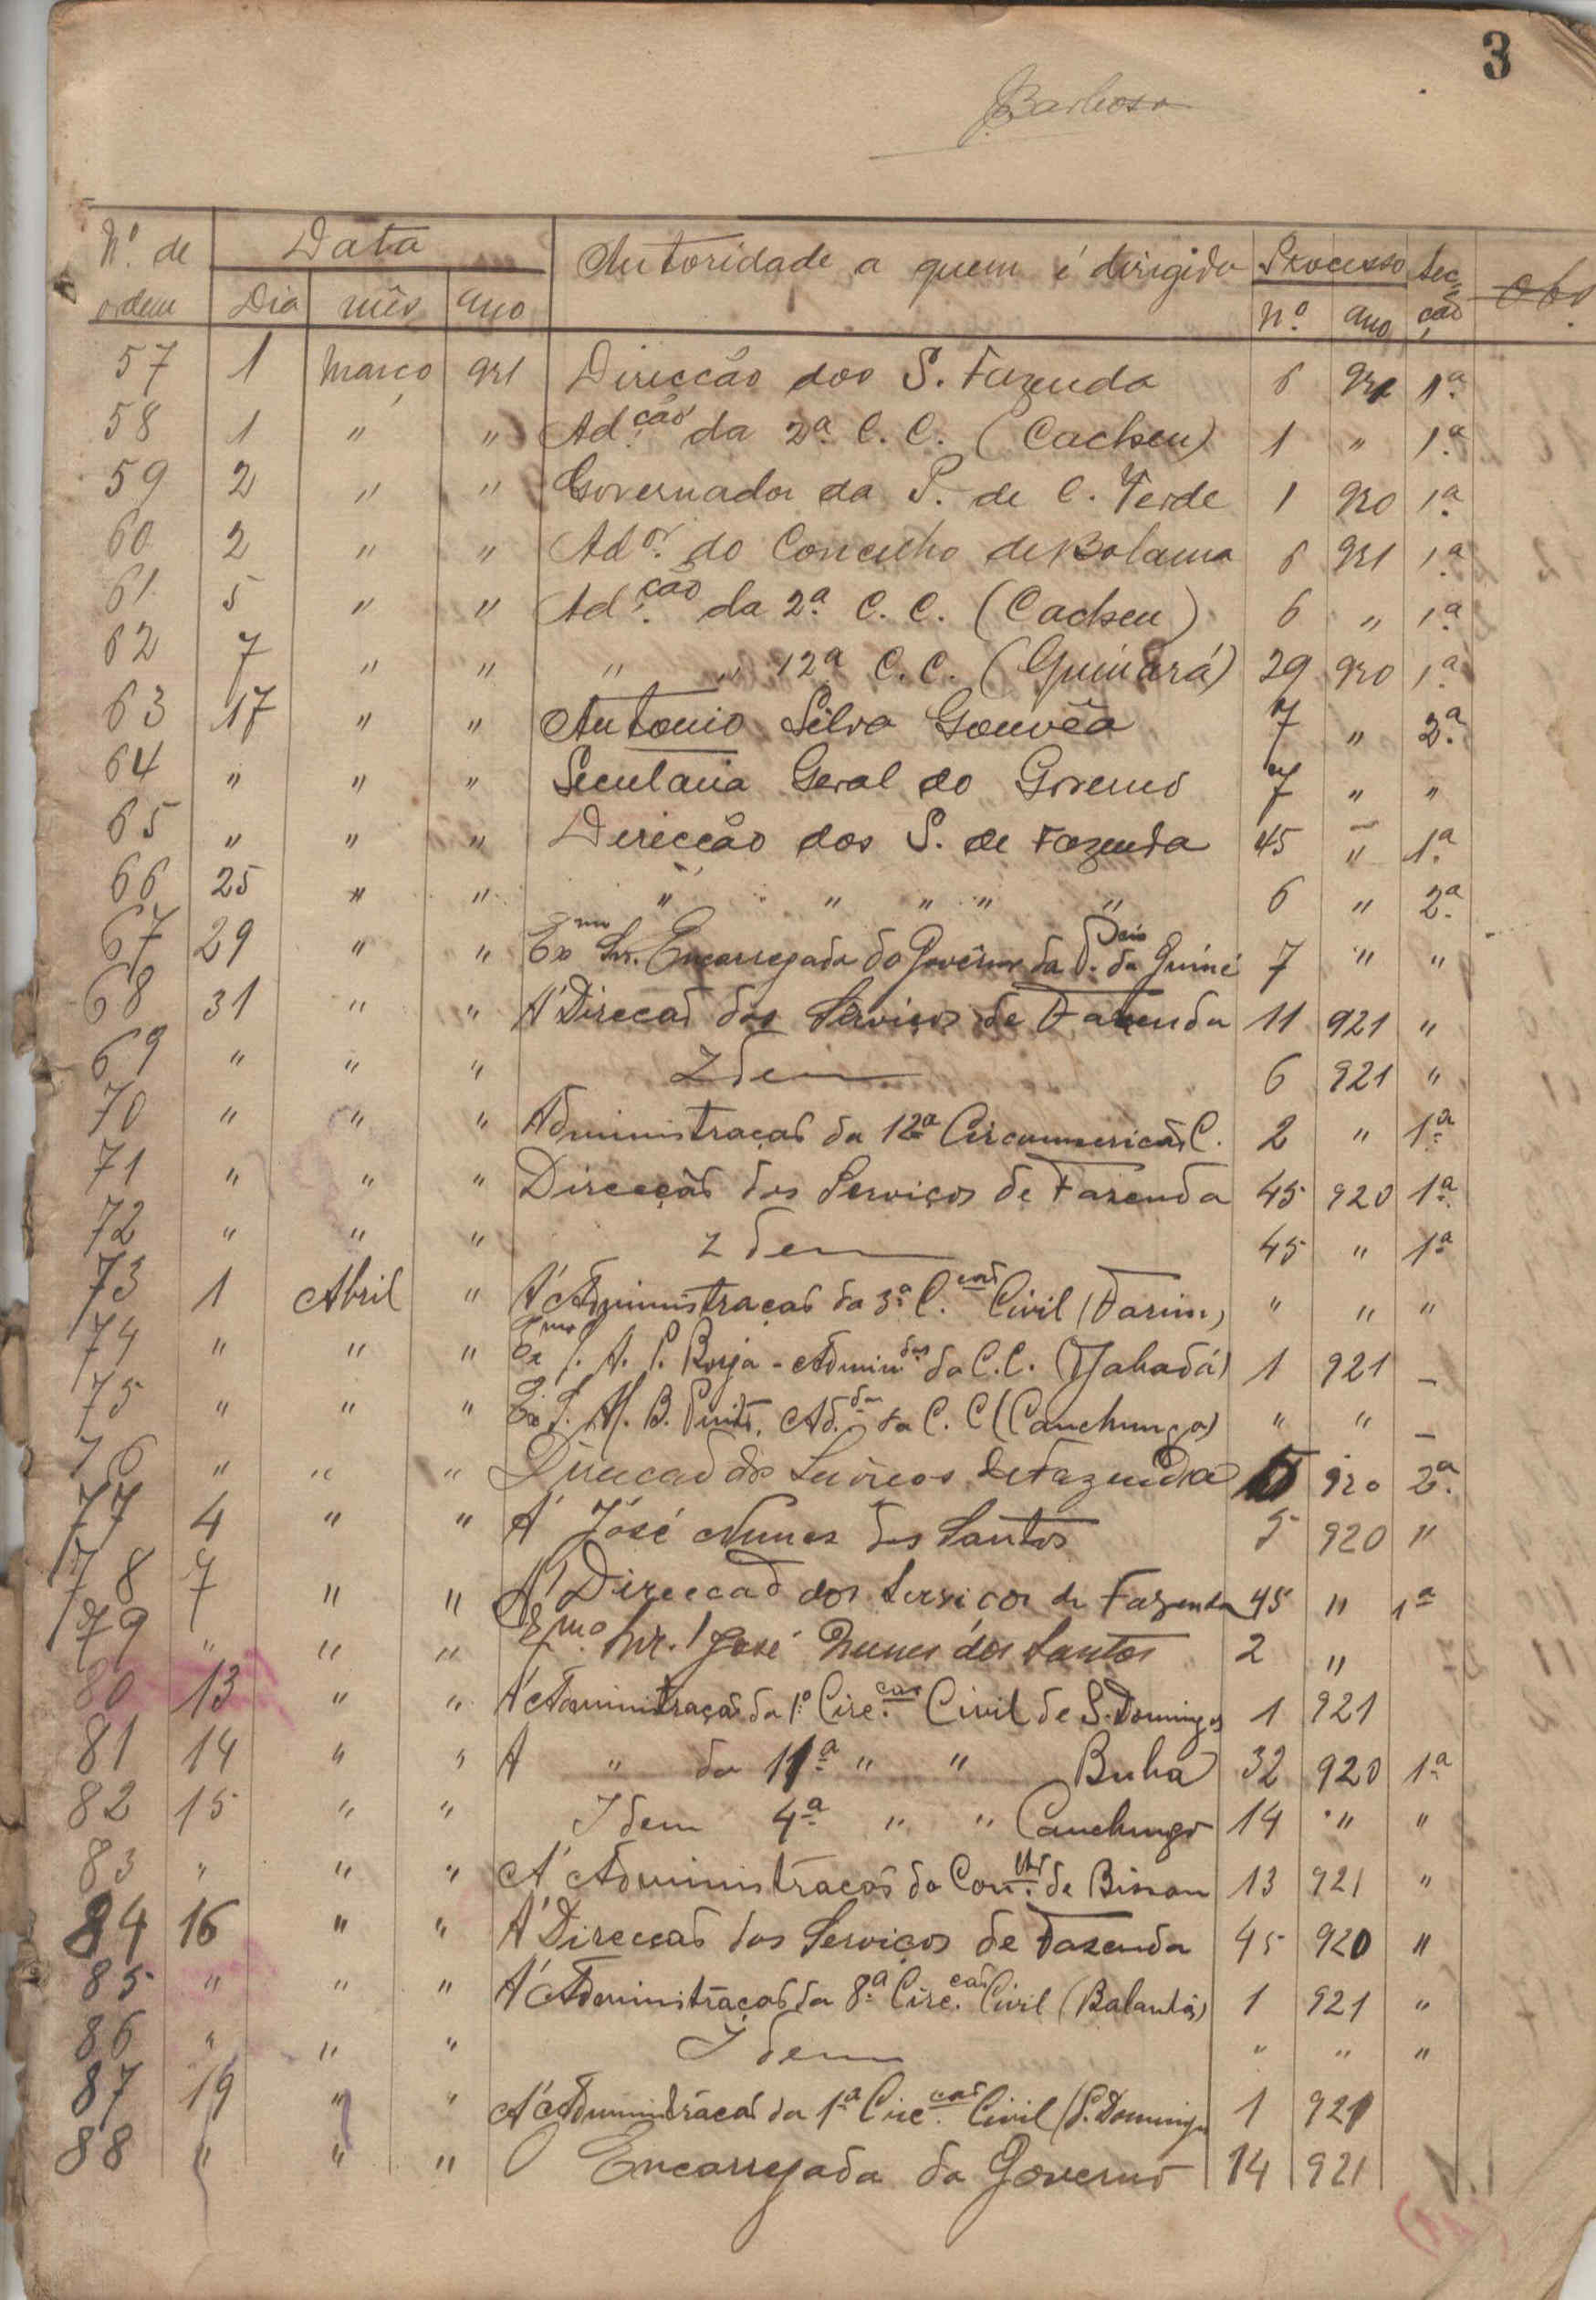 3
Barbosa
Nº de ordem Data Autoridade a quem é dirigido Processo Secção Obs.
Dia mês ano Nº ano
57 1 Março 921 Direcção dos S. Fazenda 6 921 1ª
58 1 " " Ad.ção da 2ª C. C. (Cacheu) 1 " 1ª
59 2 " " Governador da P. de C. Verde 1 920 1ª
60 2 " " Ad.or do Concelho de Bolama 6 921 1ª
61 5 " " Ad.ção da 2ª C. C. (Cacheu) 6 " 1ª
62 7 " " " " 12ª C. C. (Quinará) 29 920 1ª
63 17 " " Antonio Silva Gouvêa 7 " 2ª
64 " " " Secretaria Geral do Governo 7 " "
65 " " " Direcção dos S. de Fazenda 45 " 1ª
66 25 " " " " " " " 6 " 2ª
67 29 " " Exmo Snr. Encarregado do Govêrno da P.cia da Guiné 7 " "
68 31 " " Á Direcção dos Serviços de Fazenda 11 921 "
69 " " " Idem 6 921 "
70 " " " Administração da 12ª Circunscrição C. 2 " 1ª
71 " " " Direcção dos Serviços de Fazenda 45 920 1ª
72 " " " Idem 45 " 1ª
73 1 Abril " Á Administração da 3ª C.ção Civil (Farim) " " "
74 " " " Exmo S. A. P. Borja - Admin.dor da C. C. (Jabadá) 1 921 –
75 " " " Ex S. M. B. Ad.dor da C. C (Canchungo) " " –
76 " " " Direcção dos Serviços de Fazenda 5 920 2ª
77 4 " " A José Nunes dos Santos 5 920 "
78 7 " " Á Direcção dos Serviços de Fazenda 45 " 1ª
79 " " " Exmo Snr. José Nunes dos Santos 2 "
80 13 " " Á Administração da 1ª Circ.ção Civil de S. Domingos 1 921
81 14 " " Á " da 11ª " " Buba 32 920 1ª
82 15 " " Idem 4ª " " Canchungo 14 " "
83 " " " Á Administração do Con.lho de Bissau 13 921 "
84 16 " " Á Direcção dos Serviços de Fazenda 45 920 "
85 " " " Á Administração da 8ª Circ.ção Civil (Balantas) 1 921 "
86 " " " Idem " " "
87 19 " " Á Administração da 1ª Circ.ção Civil (S. Domingos 1 921
88 " " " O Encarregado do Governo 14 921